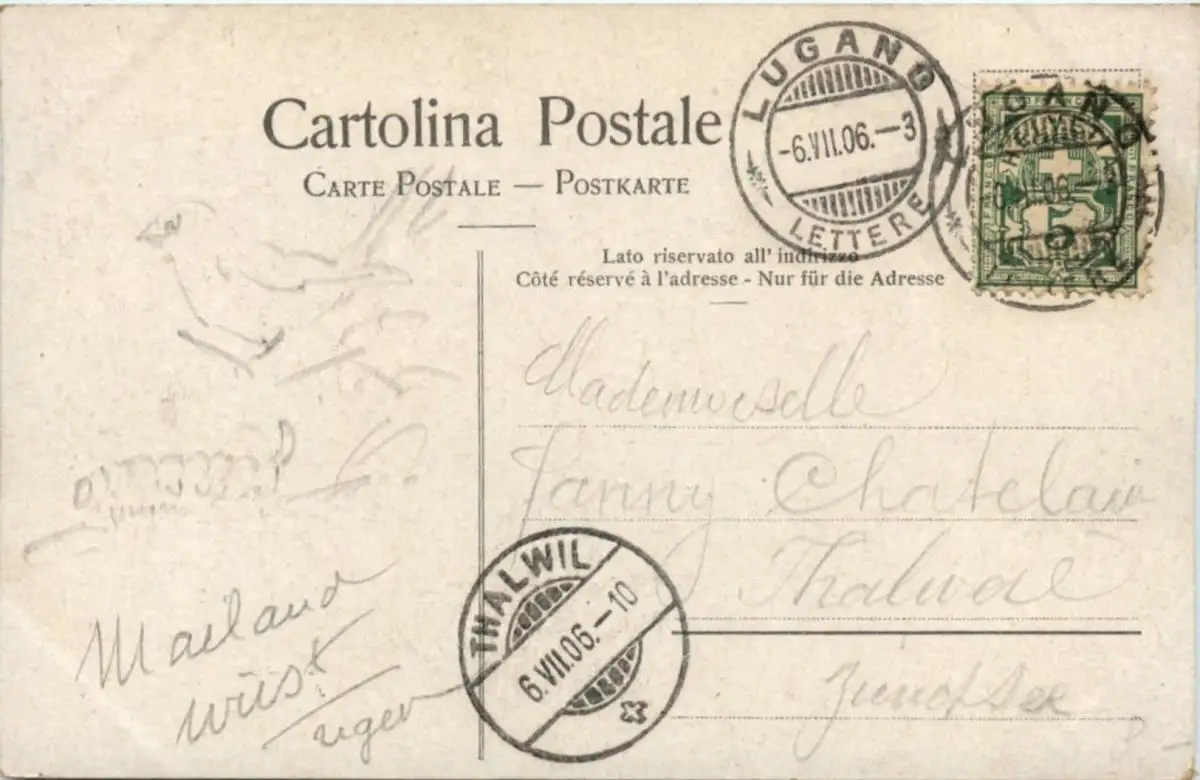 Cartolina Postale
CARTE POSTALE — POSTKARTE
LUGANO
-6.VII.06.—3
LETTERE
LUGANO
HELVETIA
5
Lato riservato all' indirizzo
Côté réservé à l'adresse - Nur für die Adresse
Mademoiselle
Fanny Chatelain
Thalwil
Zürichsee
THALWIL
6.VII.06.—10
Mailand
wüst